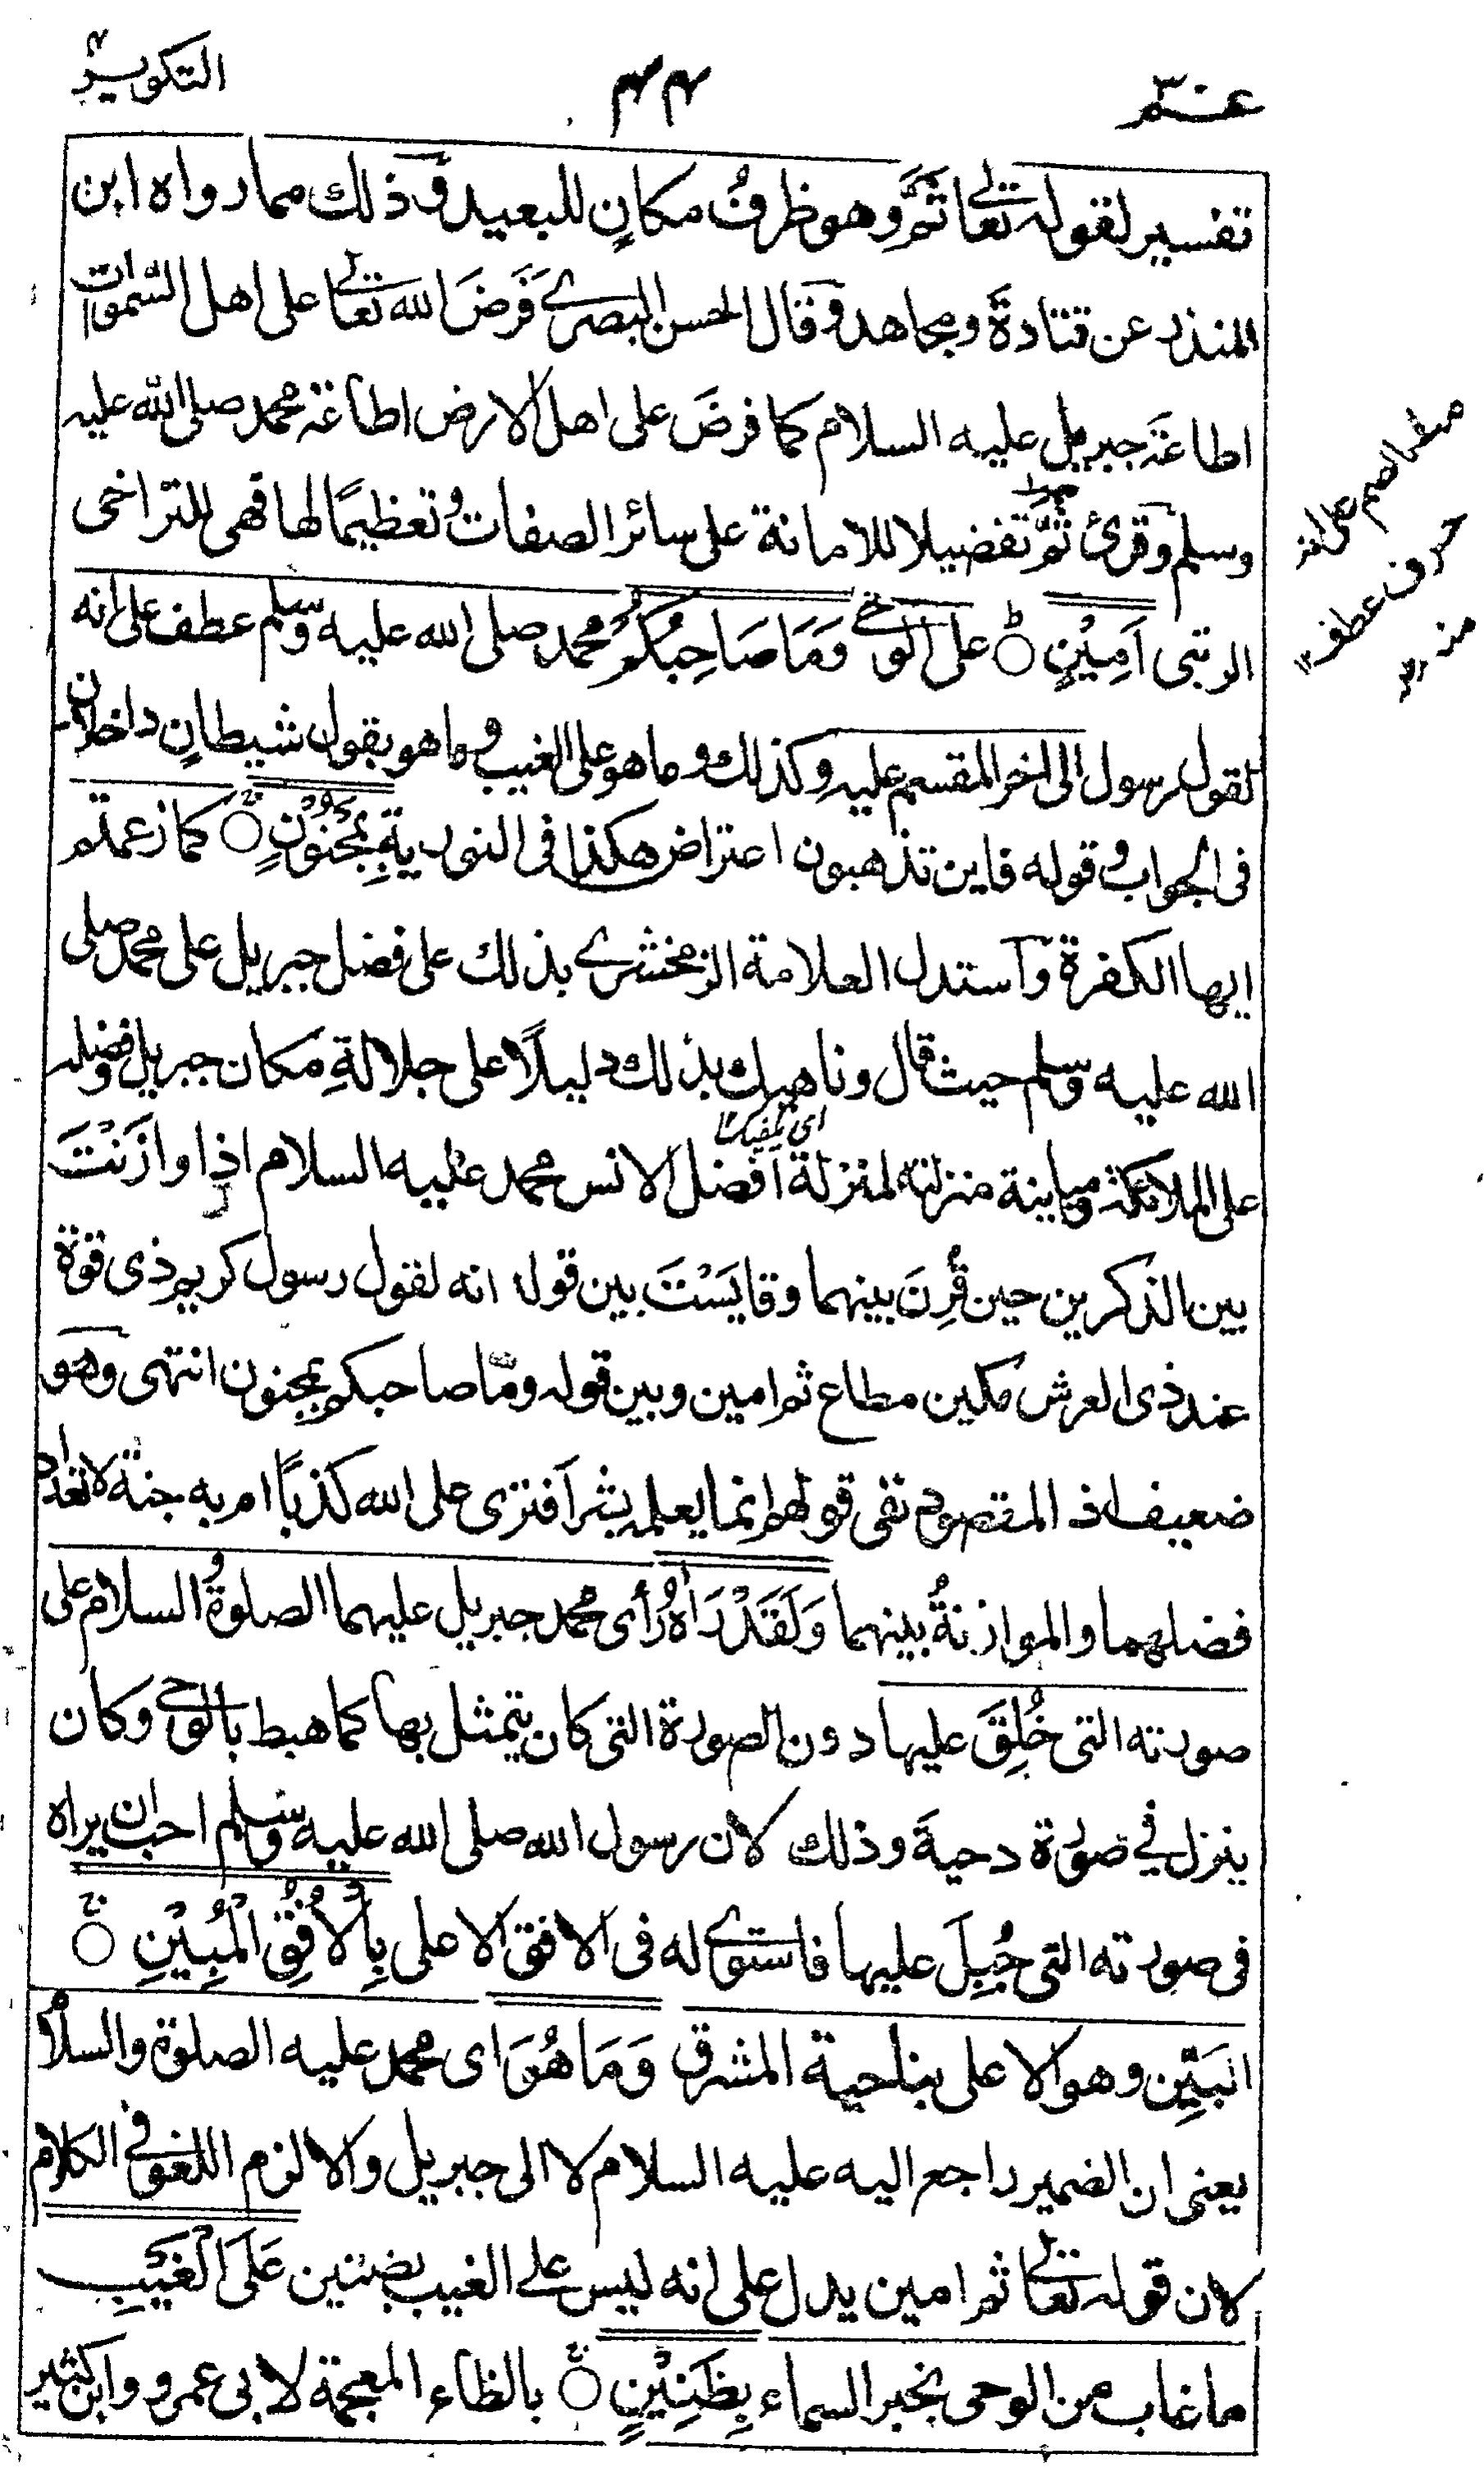 عم ٣٠
٣٤
التكوير
تفسير لقوله تعالى ثَمَّ وهو ظرفُ مكانٍ للبعيد وذلك مما رواه ابن
المنذر عن قتادةَ ومجاهد وقال الحسن البصرى فَرَضَ الله تعالى على اهل السموات
اطاعَةَ جبريل عليه السلام كما فرضَ على اهل الارض اطاعة محمد صلى الله عليه
وسلم وقرئ ثُمَّ تفضيلا للامانة على سائر الصفات وتعظيمًا لها فهى للتراخى
الرتبى اَمِيْنٍ على الوحى وَمَا صَاحِبُكُمْ محمد صلى الله عليه وسلم عطف على انه
لقول رسول الى اخر المقسم عليه وكذلك وما هو على الغيب وما هو بقول شيطانٍ داخلان
فى الجواب وقوله فاين تذهبون اعتراض هكذا فى النورية بِمَجْنُوْنٍ كما زعمتم
ايها الكفرة واستدل العلامة الزمخشرى بذلك على فضل جبريل على محمد صلى
الله عليه وسلم حيث قال وناهيك بذلك دليلًا على جلالةِ مكان جبريل وفضله
اى يكفيك
على الملائكة ومباينة منزلته لمنزلة افضل الانس محمد عليه السلام اذا وازَنْتَ
بين الذكرين حين قُرِنَ بينهما وقايَسْتَ بين قوله انه لقول رسول كريم ذى قوة
عند ذى العرش مكين مطاع ثم امين وبين قوله وما صاحبكم بمجنون انتهى وهو
ضعيف اذ المقصود نفى قولهم انما يعلمه بشر افترى على الله كذبًا ام به جنة لا تعداد
فضلهما والموازنةُ بينهما وَلَقَدْ رَاٰهُ رأى محمد جبريل عليهما الصلوة والسلام على
صورته التى خُلِقَ عليها دون الصورة التى كان يتمثل بها كما هبط بالوحى وكان
ينزل فى صورة دحية وذلك لان رسول الله صلى الله عليه وسلم احب ان يراه
فى صورته التى جُبِلَ عليها فاستوى له فى الافق الاعلى بِالْاُفُقِ الْمُبِيْنِ
البَيِّن وهو الاعلى بناحية المشرق وَمَا هُوَ اى محمد عليه الصلوة والسلام
يعنى ان الضمير راجع اليه عليه السلام لا الى جبريل والا لزم اللغو فى الكلام
لان قوله تعالى ثم امين يدل على انه ليس على الغيب بضنين عَلَى الْغَيْبِ
ما غاب من الوحى بخبر السماء بِظَنِيْنٍ بالظاء المعجمة لابى عمرو وابن كثير
بالضم على انه
حرف عطف
منه